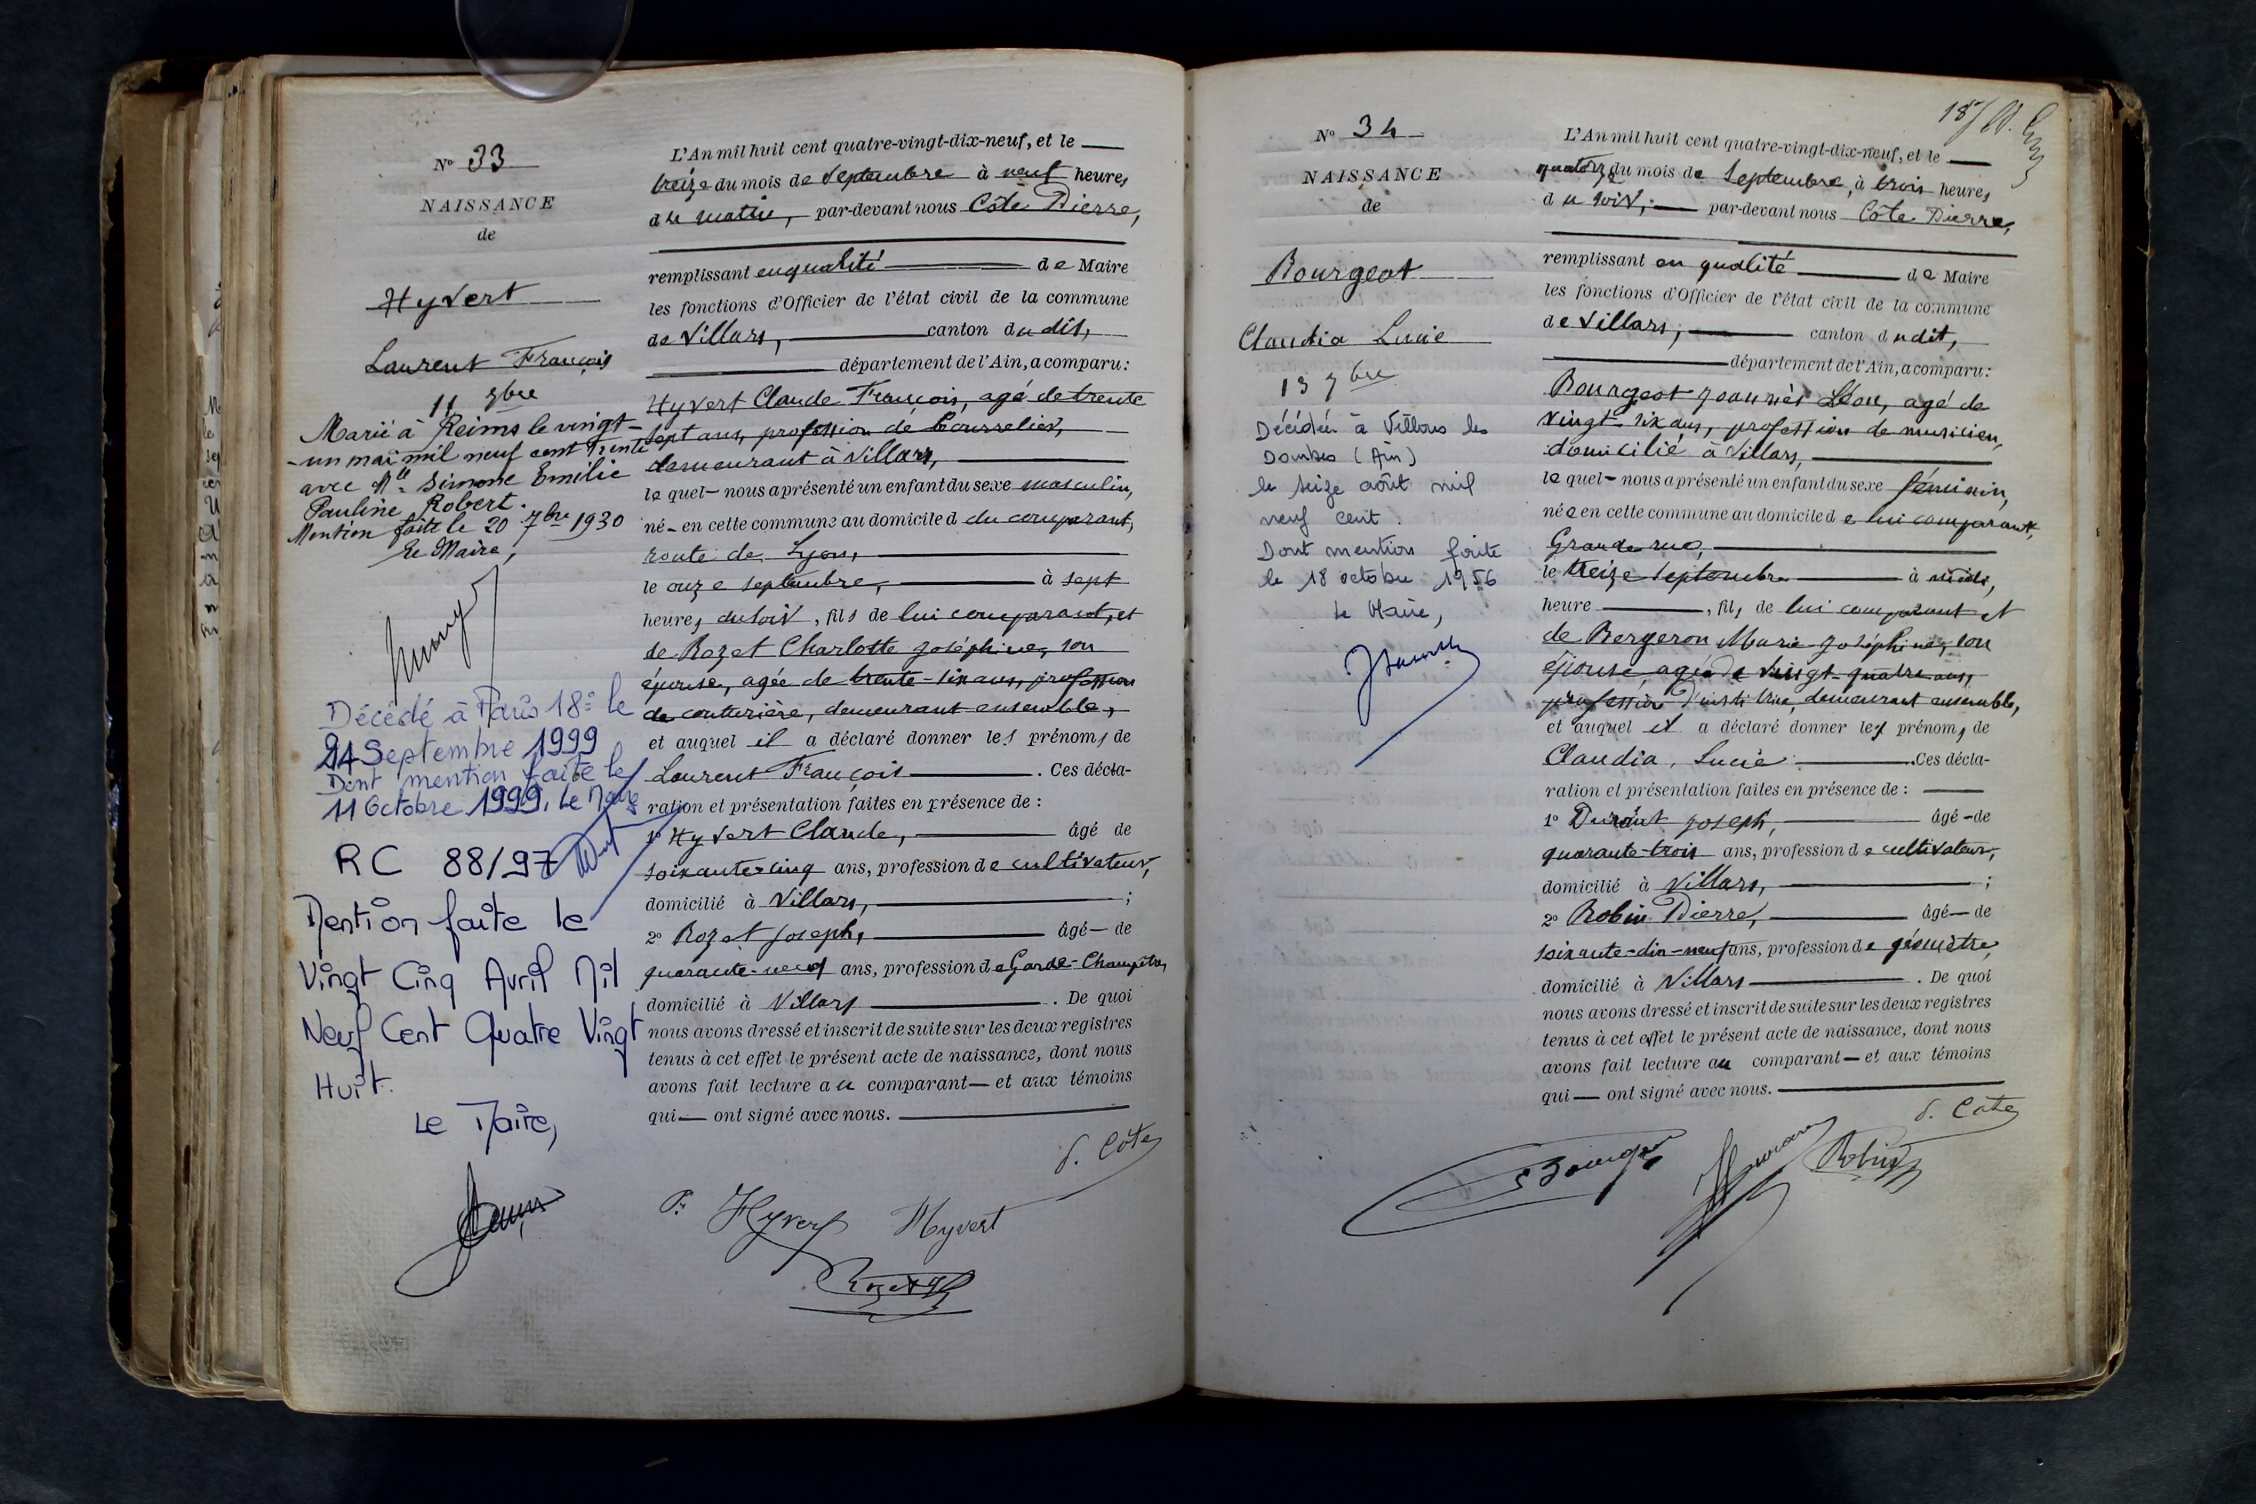 N° 33
NAISSANCE
de
Hyvert
Laurent François
11 7bre
Marié à Reims le vingt-
-un mai mil neuf cent trente
avec Mlle Simone Emilie
Pauline Robert.
Mention faite le 20 7bre 1930
Le Maire,
Décédé à Paris 18e le
24 Septembre 1999
Dont mention faite le
11 Octobre 1999. Le Maire
RC 88/97
Mention faite le
Vingt Cinq Avril Mil
Neuf Cent Quatre Vingt
Huit.
Le Maire,
L'An mil huit cent quatre-vingt-dix-neuf, et le
treize du mois de Septembre à neuf heures
du matin, par-devant nous Côte Pierre,
remplissant en qualité de Maire
les fonctions d'Officier de l'état civil de la commune
de Villars, canton dudit,
département de l'Ain, a comparu:
Hyvert Claude François, agé de trente
sept ans, profession de bourrelier,
demeurant à Villars,
lequel nous a présenté un enfant du sexe masculin,
né en cette commune au domicile d du comparant,
route de Lyon,
le onze septembre, à sept
heures du soir, fils de lui comparant, et
de Rozet Charlotte Joséphine, son
épouse, agée de trente-six ans, profession
de couturière, demeurant ensemble,
et auquel il a déclaré donner les prénoms de
Laurent François. Ces décla-
ration et présentation faites en présence de :
1° Hyvert Claude, âgé de
soixante-cinq ans, profession de cultivateur,
domicilié à Villars, ;
2° Rozet Joseph, âgé de
quarante-neuf ans, profession de Garde-Champêtre,
domicilié à Villars. De quoi
nous avons dressé et inscrit de suite sur les deux registres
tenus à cet effet le présent acte de naissance, dont nous
avons fait lecture au comparant et aux témoins
qui ont signé avec nous.
P. Côte
Hyvert Hyvert
Rozet
N° 34
NAISSANCE
de
Bourgeot
Claudia Lucie
13 7bre
Décédée à Villars les
Dombes (Ain)
le seize août mil
neuf cent.
Dont mention faite
le 18 octobre 1956
Le Maire,
L'An mil huit cent quatre-vingt-dix-neuf, et le
quatorze du mois de Septembre, à trois heures
du soir, par-devant nous Côte Pierre,
remplissant en qualité de Maire
les fonctions d'Officier de l'état civil de la commune
de Villars, canton dudit,
département de l'Ain, a comparu:
Bourgeot Joannès Léon, agé de
vingt-six ans, profession de musicien,
domicilié à Villars,
lequel nous a présenté un enfant du sexe féminin,
née en cette commune au domicile de lui comparant,
Grande rue,
le treize Septembre à midi,
heure, fils de lui comparant et
de Bergeron Marie Joséphine, son
épouse agée de vingt-quatre ans,
profession d'institutrice, demeurant ensemble,
et auquel il a déclaré donner les prénoms de
Claudia, Lucie. Ces décla-
ration et présentation faites en présence de :
1° Durant Joseph, âgé de
quarante-trois ans, profession de cultivateur,
domicilié à Villars, ;
2° Robin Pierre, âgé de
soixante-dix-neuf ans, profession de géomètre,
domicilié à Villars. De quoi
nous avons dressé et inscrit de suite sur les deux registres
tenus à cet effet le présent acte de naissance, dont nous
avons fait lecture au comparant et aux témoins
qui ont signé avec nous.
P. Côte
Robin